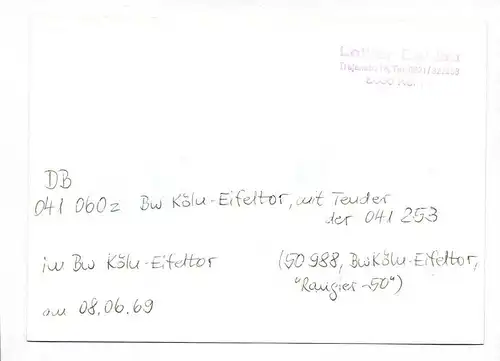 DB
041 060z Bw Köln-Eifeltor, mit Tender
der 041 253
im Bw Köln-Eifeltor (50 988, Bw Köln-Eifeltor,
"Rangier-50")
am 08.06.69